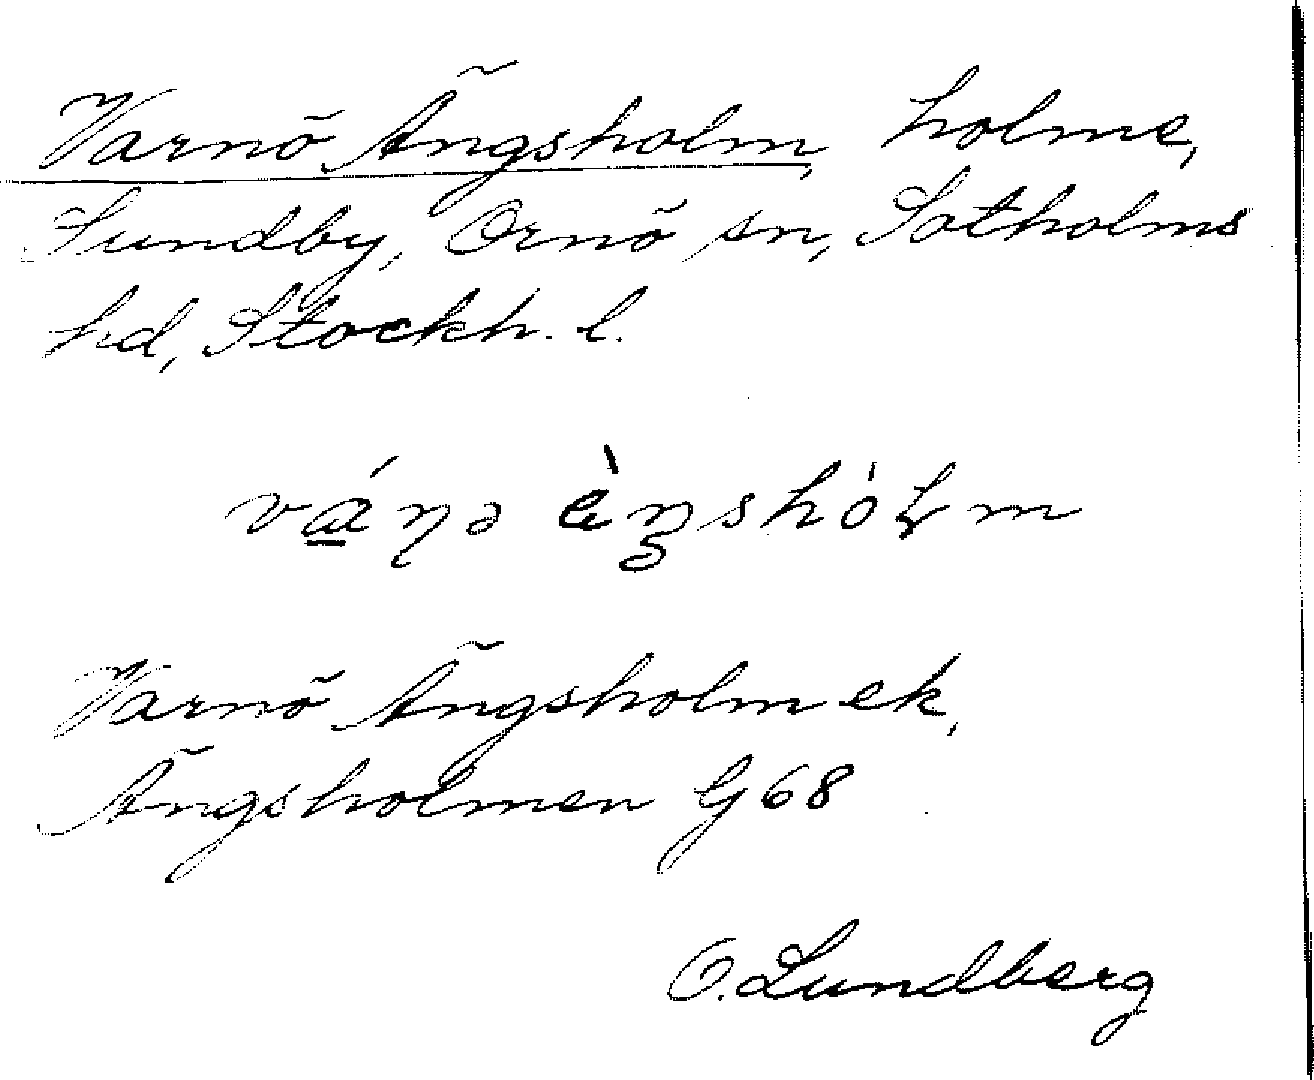 Varnö Ängsholm, holme,
Sundby, Ornö sn, Sotholms
hd, Stockh. l.
Varnö Ängsholm ek,
Ängsholmen G 68
O. Lundberg